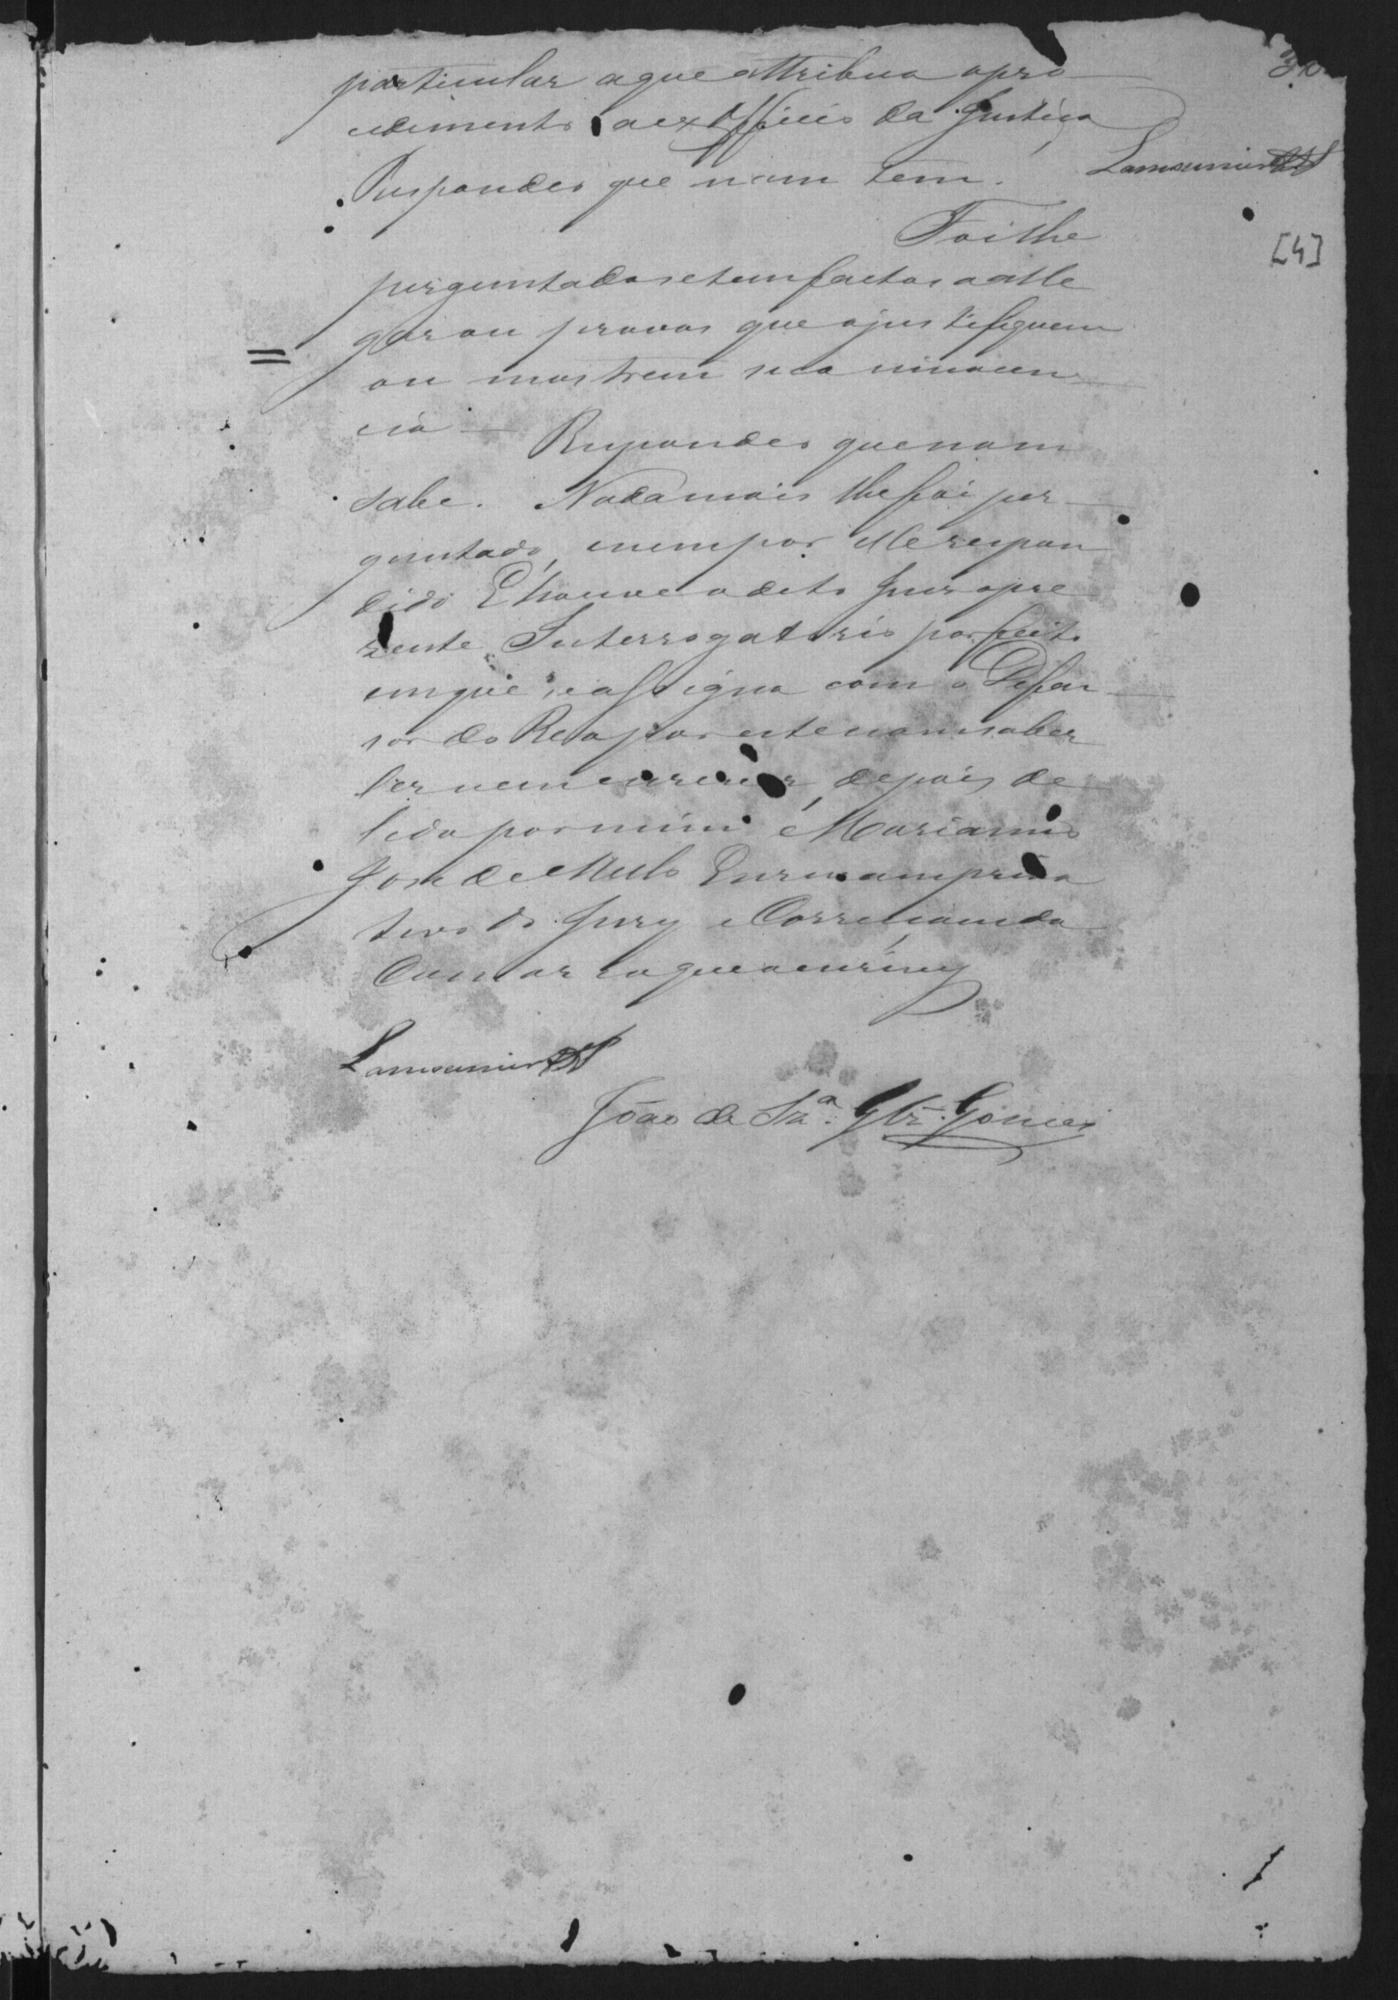 particular a que attribua o pro
cedimento ex Officio da Justiça
Respondeo que nam tem.
Foi lhe
perguntado se tem factos a alle
gar ou provas que o justifiquem
ou mostrem sua innocen
cia — Respondeo que nam
sabe. Nada mais lhe foi per
guntado, e nem por elle respon
dido E houve o dito Juis o pre
zente Interrogatorio por feito
em que se assigna com o Defen
sor do Reo por este nam saber
ler nem escrever, depois de
lido por mim Marianno
José de Mello Escrivam priva
tivo do Jury e Correiçam da
Comarca que o escrivy
João de Sza. Glz. Gomes
[4]